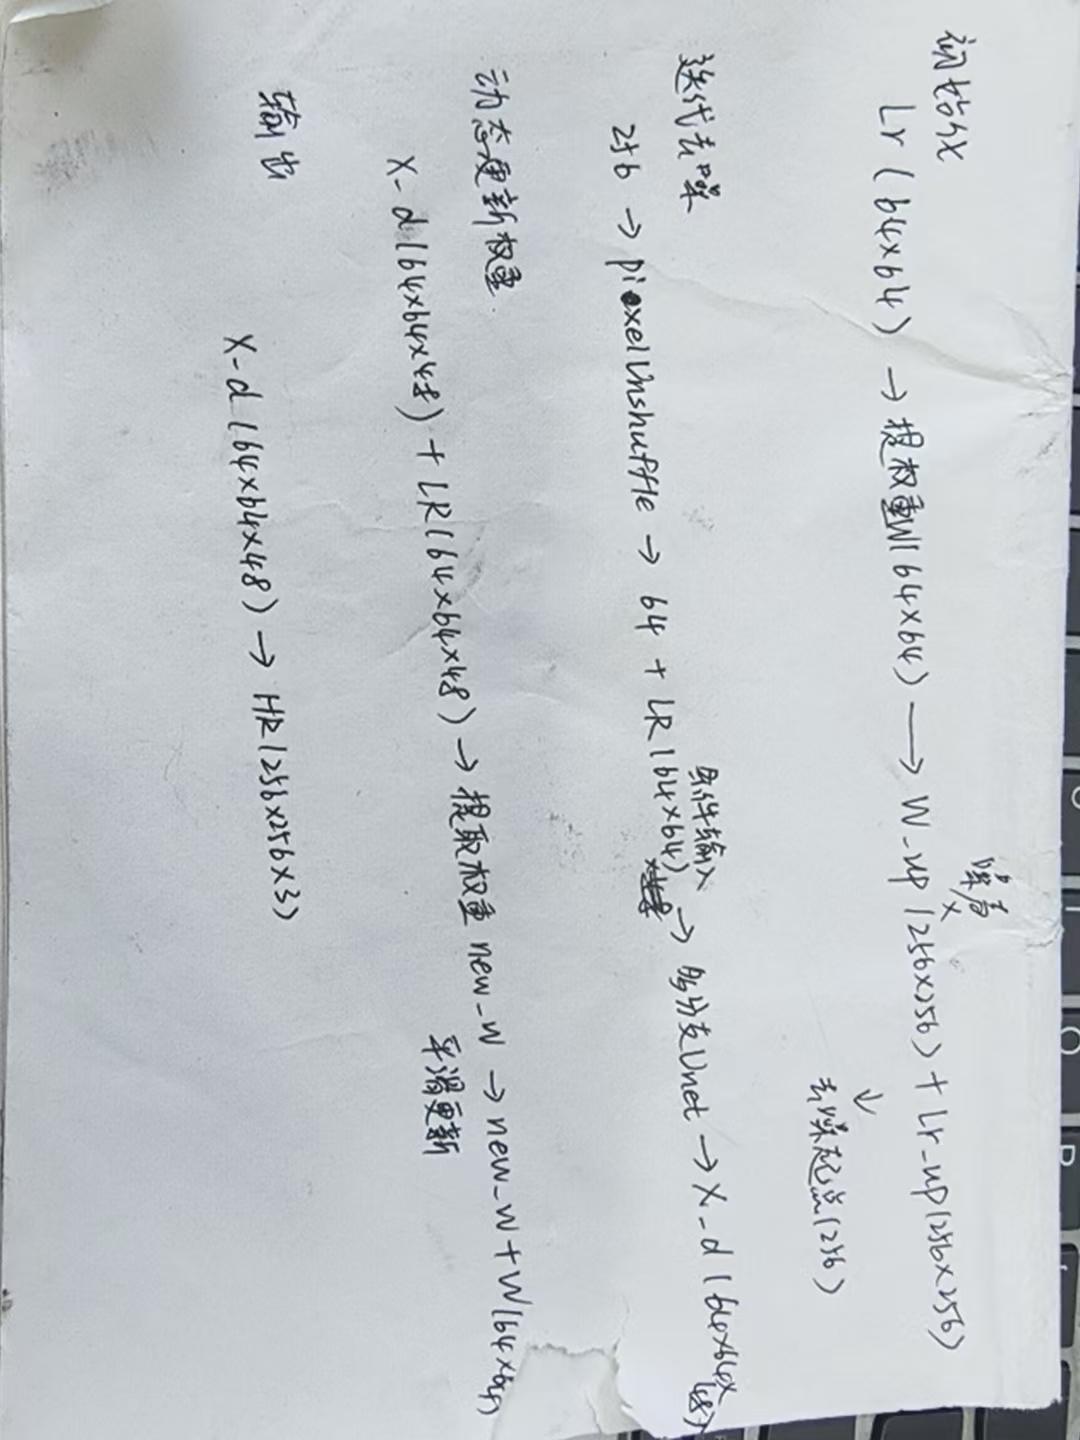 初始化
Lr (64×64) → 提权重W(64×64) → W_up (256×256) + Lr_up(256×256)
× 噪声
↓
去噪起点(256)
迭代去噪
256 → pixelUnshuffle → 64 + LR(64×64) → 多分支Unet → X_d(64×64×48)
条件输入
动态更新权重
X_d(64×64×48) + LR(64×64×48) → 提取权重 new_W → new_W + W(64×64)
平滑更新
输出
X_d(64×64×48) → HR(256×256×3)